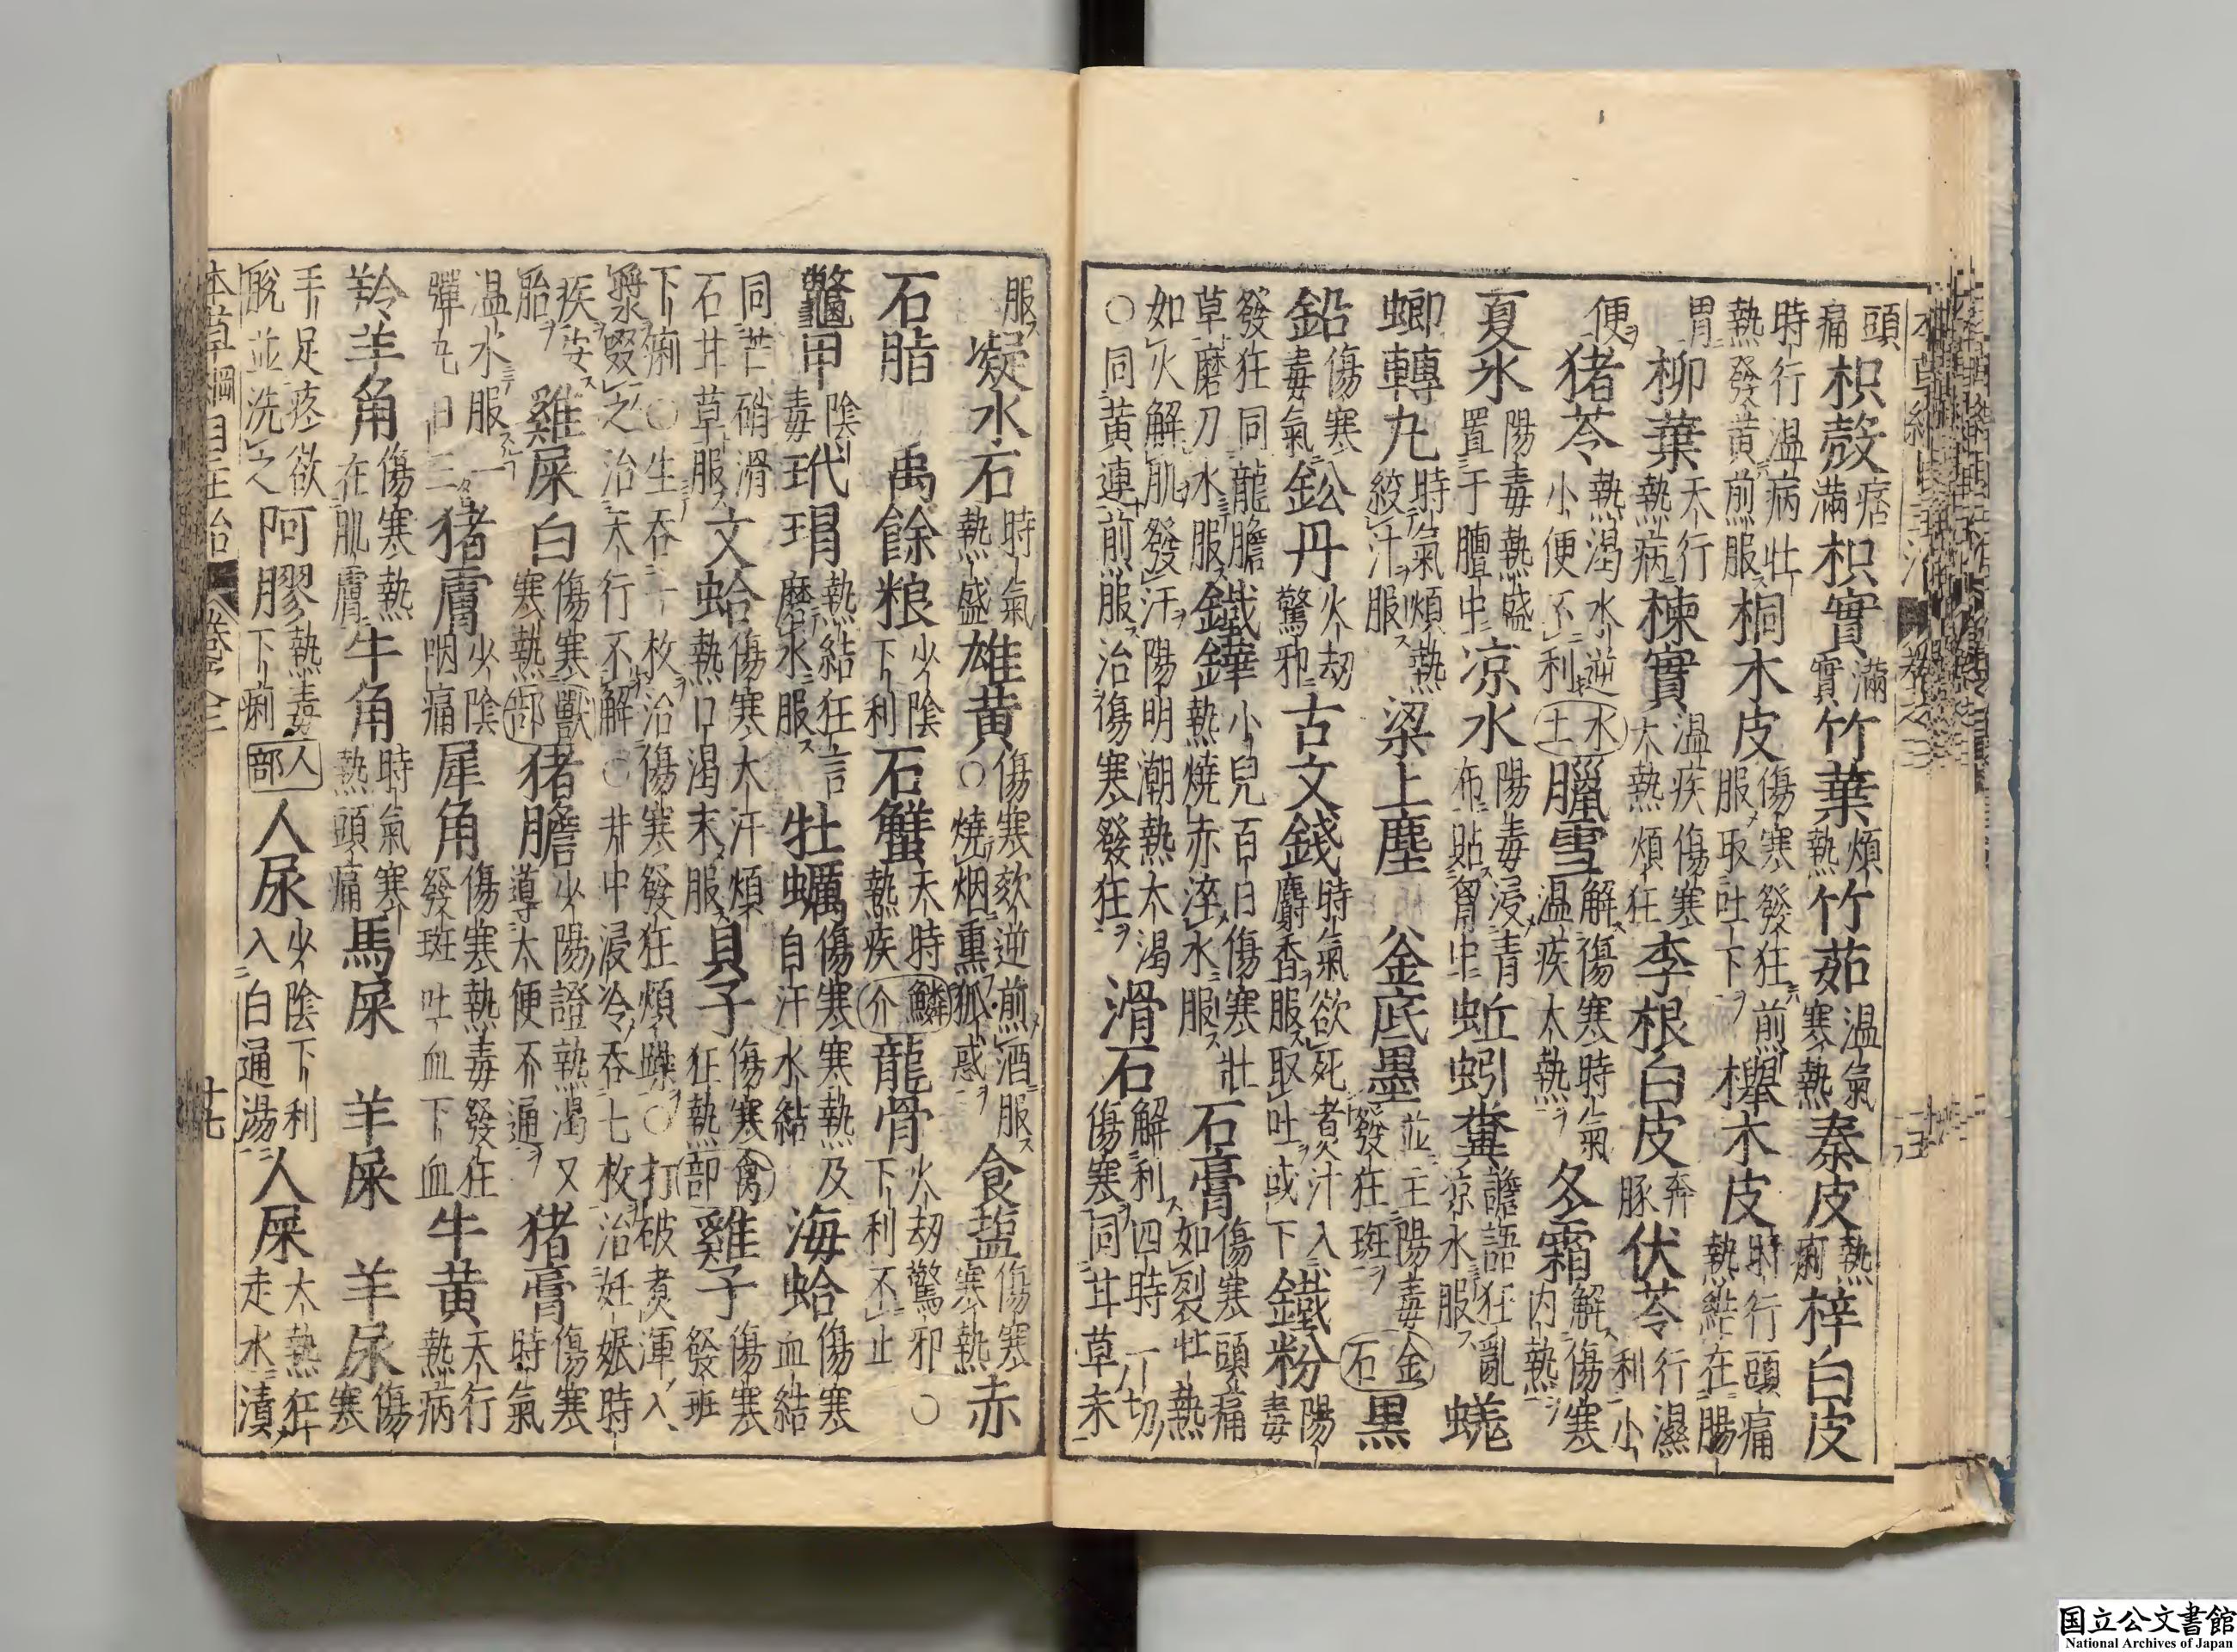 頭痛枳殼痞滿枳實滿實竹葉煩熱竹茹温氣寒熱秦皮熱痢梓白皮
時行温病壯熱發黃煎服桐木皮傷寒發狂煎服取吐下櫸木皮時行頭痛熱結在腸
胃柳葉天行熱病楝實温疾傷寒太熱煩狂李根白皮奔豚伏苓行濕利小
便猪苓熱渴水逆小便不利水土臘雪解傷寒時氣温疾太熱冬霜解傷寒内熱
夏氷陽毒熱盛置于膻中凉水陽毒浸青布貼胷中蚯蚓糞譫語狂亂凉水服蜣
蜋轉丸時氣煩熱絞汁服梁上塵釜底墨並主陽毒發狂斑金石黑
鉛傷寒毒氣鈆丹火劫驚邪古文錢時氣欲死者煑汁入麝香服取吐或下鐵粉陽毒
發狂同龍膽草磨刀水服鐵鏵小兒百日傷寒壯熱燒赤淬水服石膏傷寒頭痛如裂壯熱
如火解肌發汗陽明潮熱太渴○同黃連煎服治傷寒發狂滑石解利四時一切傷寒同甘草末
服凝水石時氣熱盛雄黃傷寒欬逆煎酒服○燒烟熏狐惑食盐傷寒寒熱赤
石脂禹餘粮少陰下利石蟹天時熱疾鱗介龍骨火劫驚邪下利不止○
鼈甲陰毒玳瑁熱結狂言磨水服牡蠣傷寒寒熱及自汗水結海蛤傷寒血結
同芒硝滑石甘草服文蛤傷寒大汗煩熱口渴末服貝子傷寒狂熱禽部雞子傷寒發班
下痢○生吞一枚治傷寒發狂煩躁○打破煑渾入漿啜之治天行不解○井中浸冷吞七枚治妊娠時
疾安胎雞屎白傷寒寒熱獸部猪膽少陽證熱渴又導大便不通猪膏傷寒時氣
温水服一彈丸日三猪膚少陰咽痛犀角傷寒熱毒發狂發斑吐血下血牛黃天行熱病
羚羊角傷寒熱在肌膚牛角時氣寒熱頭痛馬屎羊屎羊尿傷寒
手足疼欲脫並洗之阿膠熱毒下痢人部人尿少陰下利入白通湯人屎大熱狂走水漬
本草綱目主治 卷之三 十七
国立公文書館
National Archives of Japan